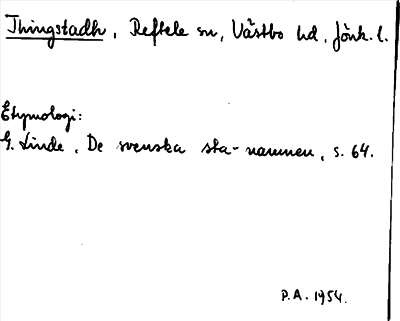 Thingstadh, Reftele sn, Västbo hd, Jönk. l.
Etymologi:
G. Linde, De svenska sta-namnen, s. 64.
P.A. 1954.